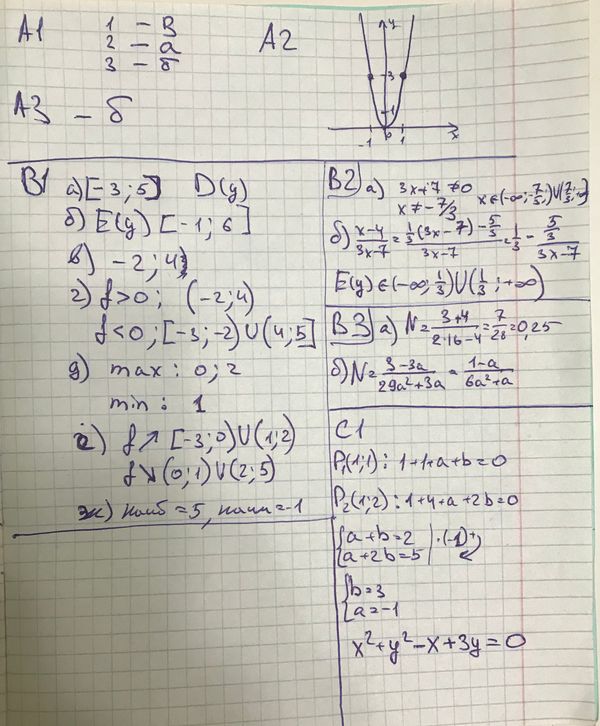 A1
1 – В
2 – а
3 – б
A2
y
3
1
-1 0 1 x
A3 – б
B1 а) [-3; 5] D(y)
б) E(y) [-1; 6]
в) -2; 4
г) f>0; (-2; 4)
f<0; [-3; -2) U (4; 5]
д) max: 0; 2
min: 1
е) f↗ [-3; 0) U (1; 2)
f↘ (0; 1) U (2; 5)
ж) наиб = 5, наим = -1
B2 а) 3x+7 ≠ 0
x ≠ -7/3
б) (x-4)/(3x-7) = (1/3(3x-7) - 5/3)/(3x-7) = 1/3 - (5/3)/(3x-7)
E(y) ∈ (-∞; 1/3) U (1/3; +∞)
B3 а) N = (3+4)/(2·16-4) = 7/28 = 0,25
б) N = (3-3a)/(29a²+3a) = (1-a)/(6a²+a)
C1
P₁(1;1): 1+1+a+b=0
P₂(1;2): 1+4+a+2b=0
{a+b=2 | ·(-1) +
{a+2b=5
{b=3
{a=-1
x²+y²-x+3y=0